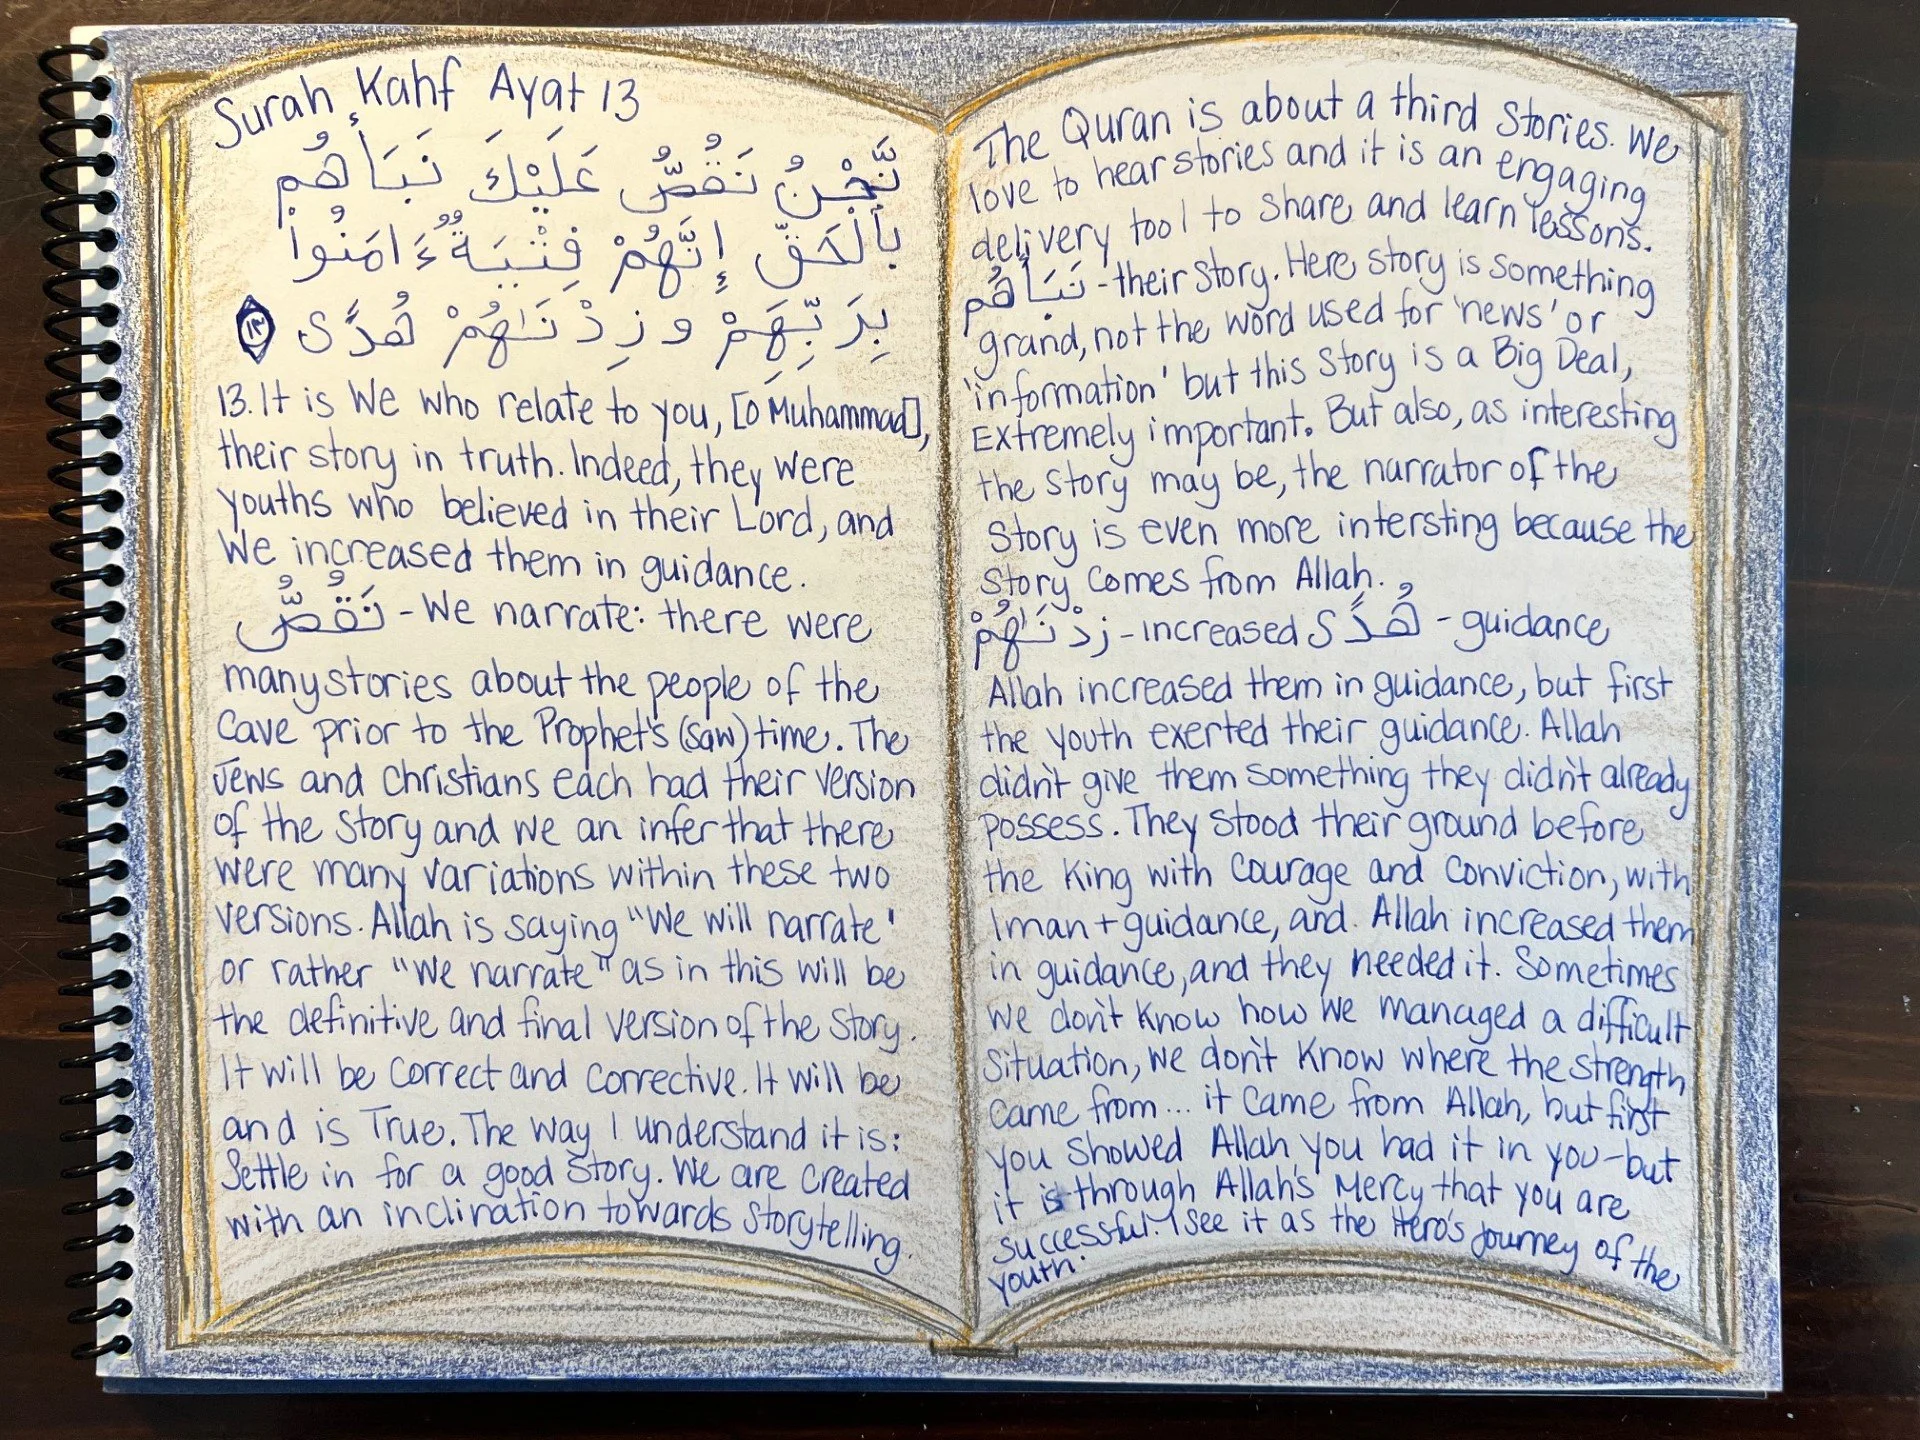 Surah Kahf Ayat 13
نَّحْنُ نَقُصُّ عَلَيْكَ نَبَأَهُم
بِٱلْحَقِّ إِنَّهُمْ فِتْيَةٌ ءَامَنُوا۟
بِرَبِّهِمْ وَزِدْنَـٰهُمْ هُدًى ١٣
13. It is We who relate to you, [O Muhammad],
their story in truth. Indeed, they were
youths who believed in their Lord, and
We increased them in guidance.
نَقُصُّ - We narrate: there were
many stories about the people of the
Cave prior to the Prophet's (saw) time. The
Jews and Christians each had their version
of the story and we an infer that there
were many variations within these two
versions. Allah is saying "We will narrate'
or rather "We narrate" as in this will be
the definitive and final version of the story.
It will be correct and corrective. It will be
and is True. The way I understand it is:
Settle in for a good story. We are created
with an inclination towards storytelling.
The Quran is about a third stories. We
love to hear stories and it is an engaging
delivery tool to share and learn lessons.
نَبَأَهُم - their story. Here story is something
grand, not the word used for 'news' or
'information' but this story is a Big Deal,
Extremely important. But also, as interesting
the story may be, the narrator of the
story is even more intersting because the
story comes from Allah.
زِدْنَـٰهُمْ - increased هُدًى - guidance
Allah increased them in guidance, but first
the youth exerted their guidance. Allah
didn't give them something they didn't already
possess. They stood their ground before
the King with courage and conviction, with
Iman + guidance, and. Allah increased them
in guidance, and they needed it. Sometimes
we don't know how we managed a difficult
situation, we don't know where the strength
came from... it came from Allah, but first
you showed Allah you had it in you - but
it is through Allah's Mercy that you are
successful. I see it as the Hero's journey of the
youth.